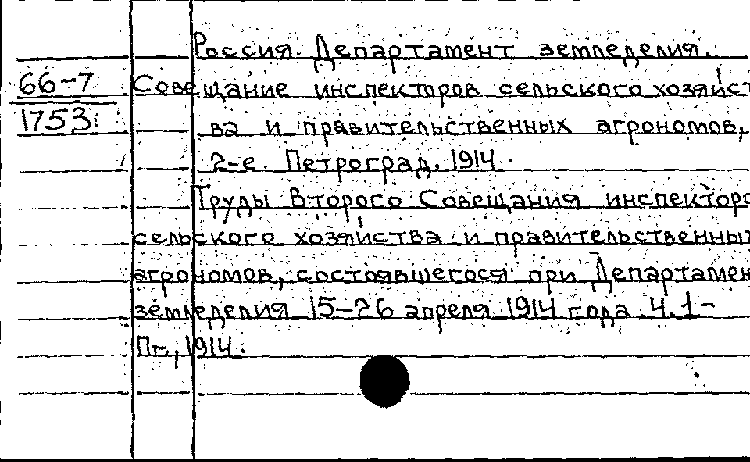 Россия. Департамент земледелия.
66-7
1753
Совещание инспекторов сельского хозяйст
ва и правительственных агрономов,
2-е. Петроград. 1914.
Труды Второго Совещания инспекторо
сельского хозяйства и правительственны
агрономов, состоявшегося при Департамен
земледелия 15-26 апреля 1914 года. Ч.1-
Пг., 1914.